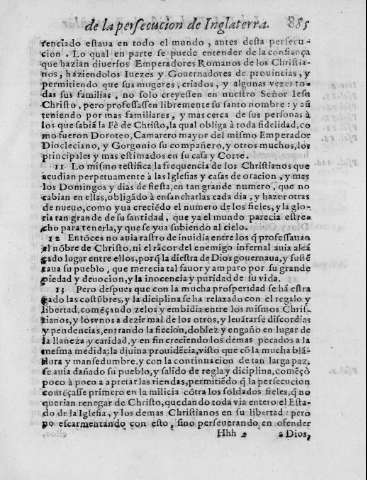 de la persecucion de Inglaterra. 885
renciado estaua en todo el mundo, antes desta persecu-
cion. Lo qual en parte se puede entender de la confiança
que hazian diuersos Emperadores Romanos de los Christia-
nos, haziendolos Iuezes y Gouernadores de prouincias, y
permitiendo que sus mugeres, criados, y algunas vezes to-
das sus familias, no solo creyessen en nuestro Señor Iesu
Christo, pero professassen libremente su santo nombre: y aũ
teniendo por mas familiares, y mas cerca de sus personas à
los que sabiã la Fè de Christo, la qual obliga à toda fidelidad, co
mo fueron Doroteo, Camarero mayor del mismo Emperador
Diocleciano, y Gorgonio su compañero, y otros muchos, los
principales y mas estimados en su casa y Corte.
11 Lo mismo testifica la frequencia de los Christianos que
acudian perpetuamente à las Iglesias y casas de oracion, y mas
los Domingos y dias de fiesta, en tan grande numero, que no
cabian en ellas, obligãdo à ensancharlas cada dia, y hazer otras
de nueuo, como yua creciẽdo el numero de los fieles, y la glo-
ria tan grande de su santidad, que ya el mundo parecia estre-
cho para tenerla, y que se yua subiendo al cielo.
12 Entõces no auia rastro de inuidia entre los q̃ professauan
el nõbre de Christo, ni el ãcor del enemigo infernal auia alcã
çado lugar entre ellos, porq̃ la diestra de Dios gouernaua, y sustẽ
taua su pueblo, que merecia tal fauor y amparo por su grande
piedad y deuocion, y la inocencia y puridad de su vida.
13 Pero despues que con la mucha prosperidad se hã estra
gado las costũbres, y la diciplina se ha relaxado con el regalo y
libertad, començando zelos y embidia entre los mismos Chris-
tianos, y los vnos a dezir mal de los otros, y leuãtarse discordias
y pendencias, entrando la ficcion, doblez y engaño en lugar de
la llaneza y caridad, y en fin creciendo los demas pecados a la
mesma medida; la diuina prouidẽcia, visto que cõ la mucha blã-
dura y mansedumbre, y con la continuacion de tan larga paz,
se auia dañado su pueblo, y salido de regla y diciplina, comẽçò
poco à poco a apretar las riendas, permitiẽdo q̃ la persecucion
comẽçasse primero en la milicia cõtra los soldados fieles, q̃ no
querian renegar de Christo, quedando toda via entero el Esta-
do de la Iglesia, y los demas Christianos en su libertad: pero
no escarmentando con esto, sino perseuerando en ofender
Hhh 2 à Dios,